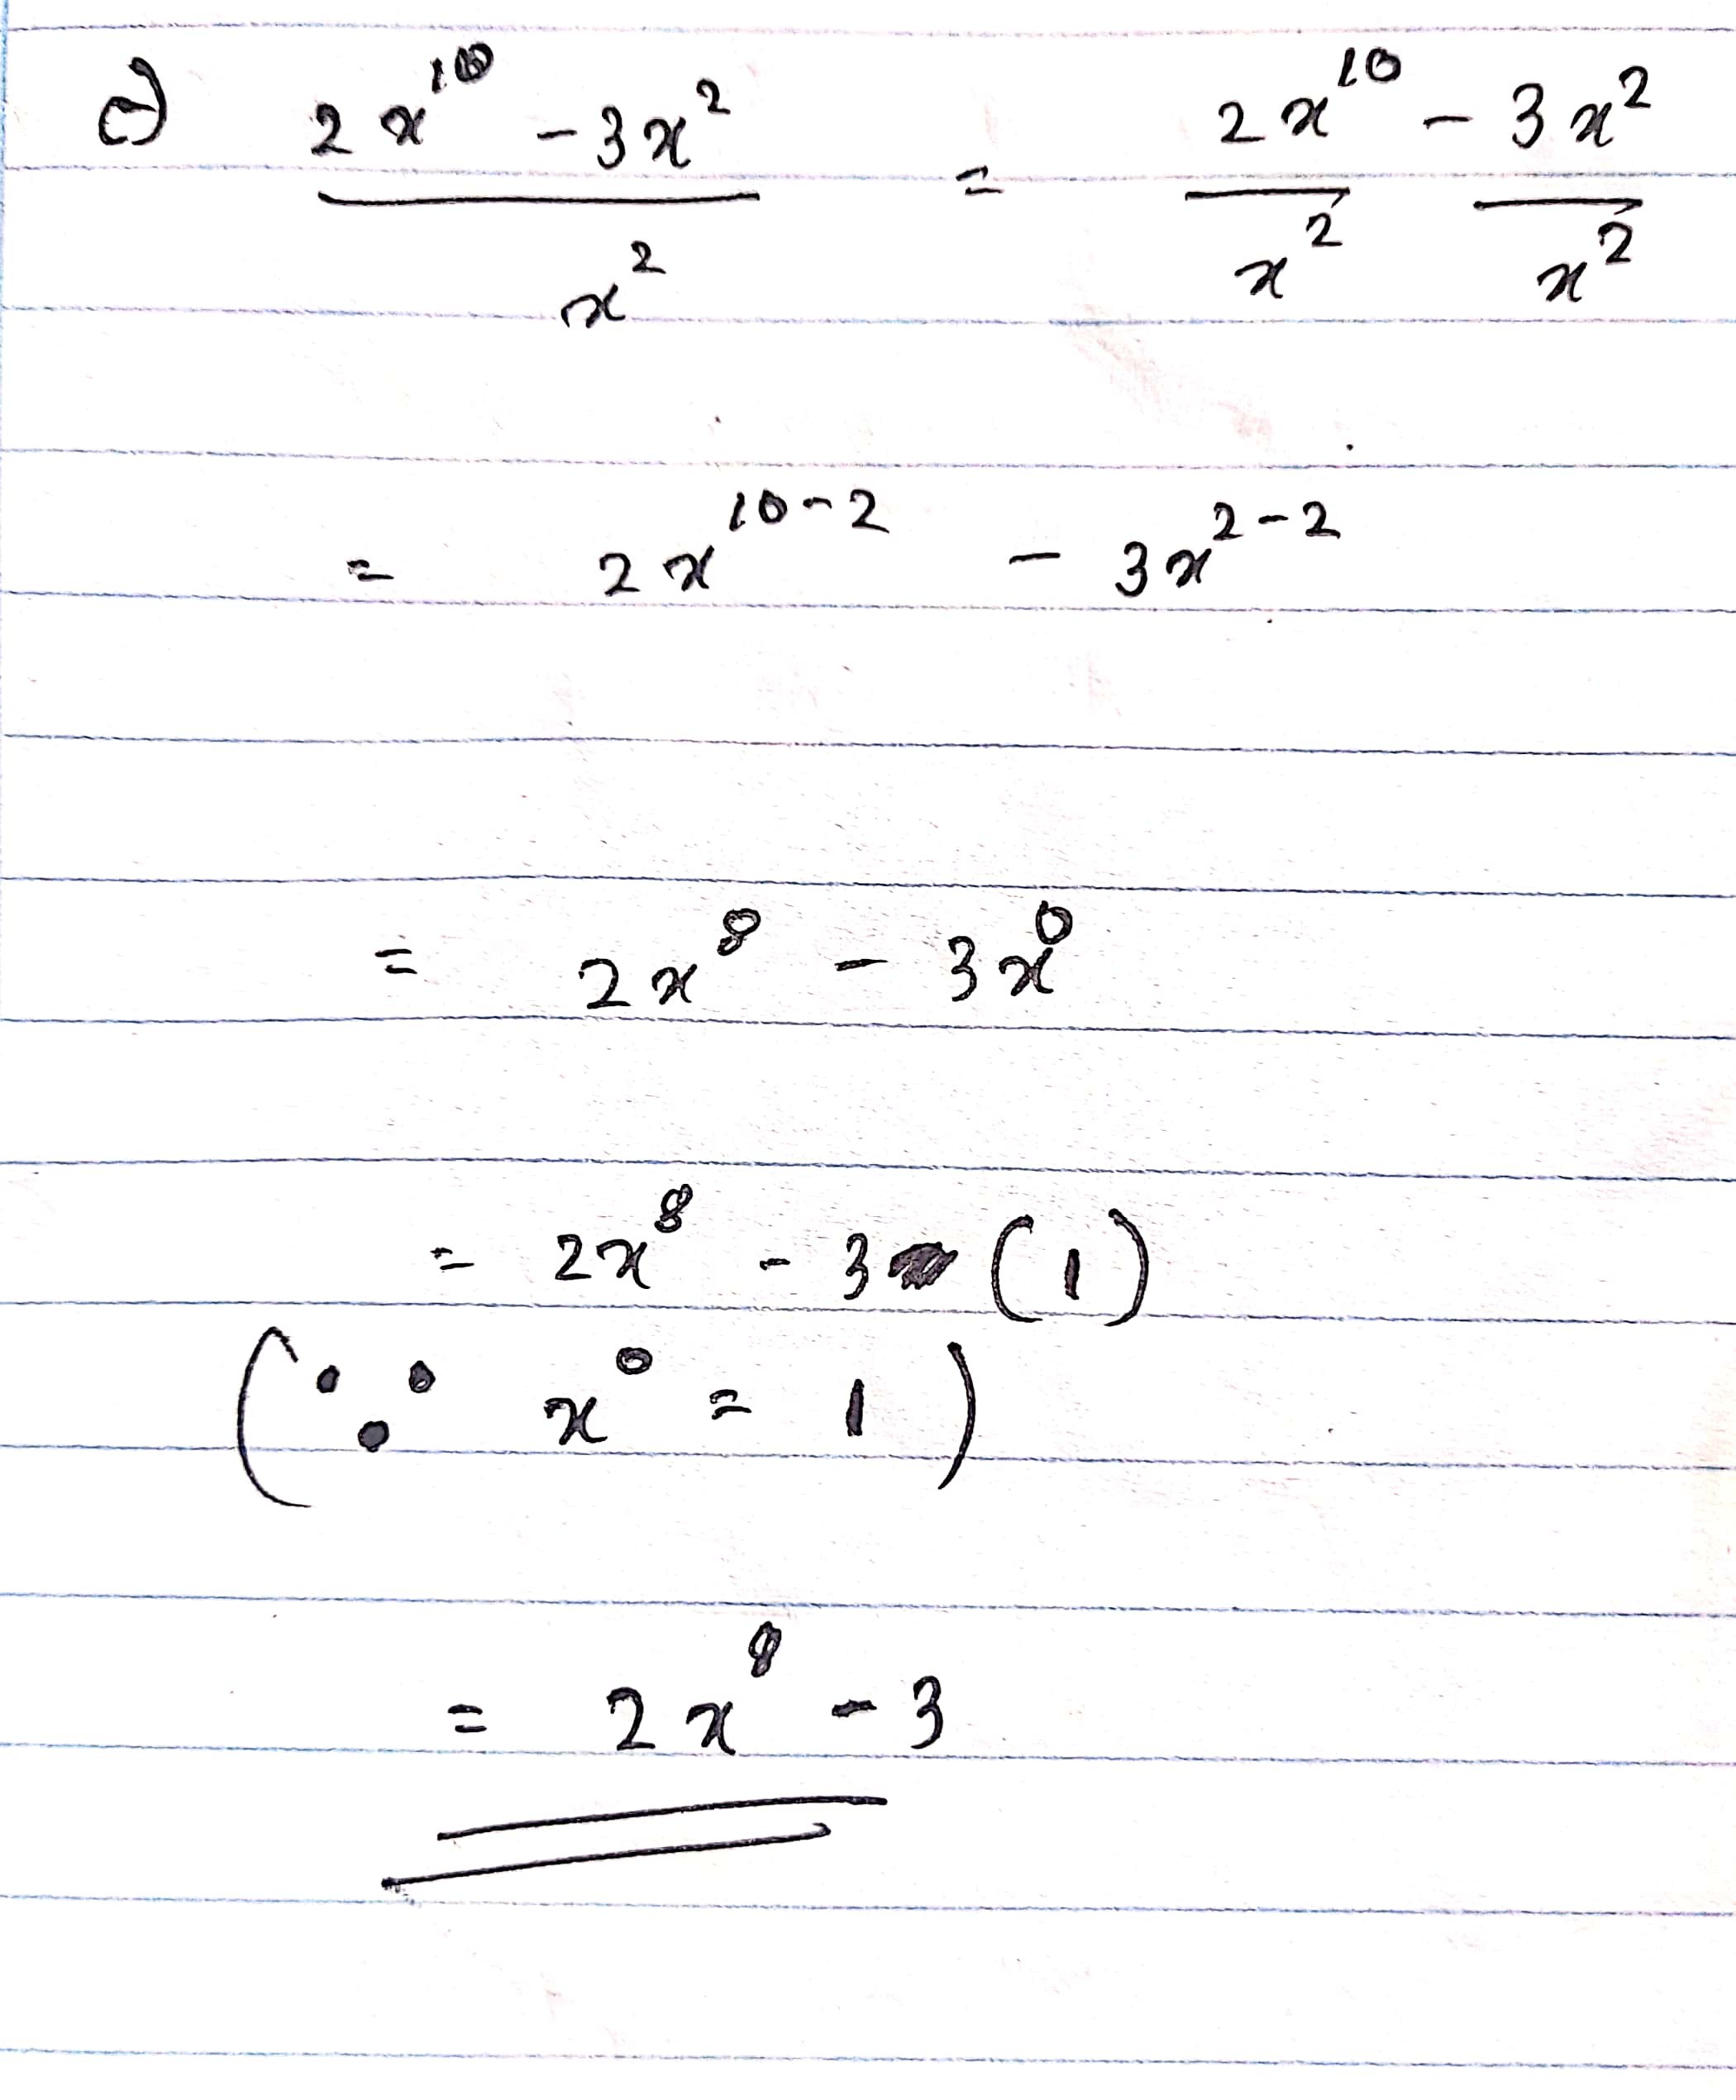 c) (2x¹⁰ - 3x²)/x² = 2x¹⁰/x² - 3x²/x²
= 2x¹⁰⁻² - 3x²⁻²
= 2x⁸ - 3x⁰
= 2x⁸ - 3 (1)
(∵ x⁰ = 1)
= 2x⁸ - 3